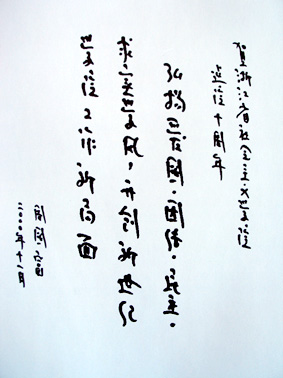 贺浙江省社会主义学院
建院十周年
弘扬爱国、团结、民主、
求实学风，开创新世纪
学院工作新局面
周国富
二〇〇〇年十一月